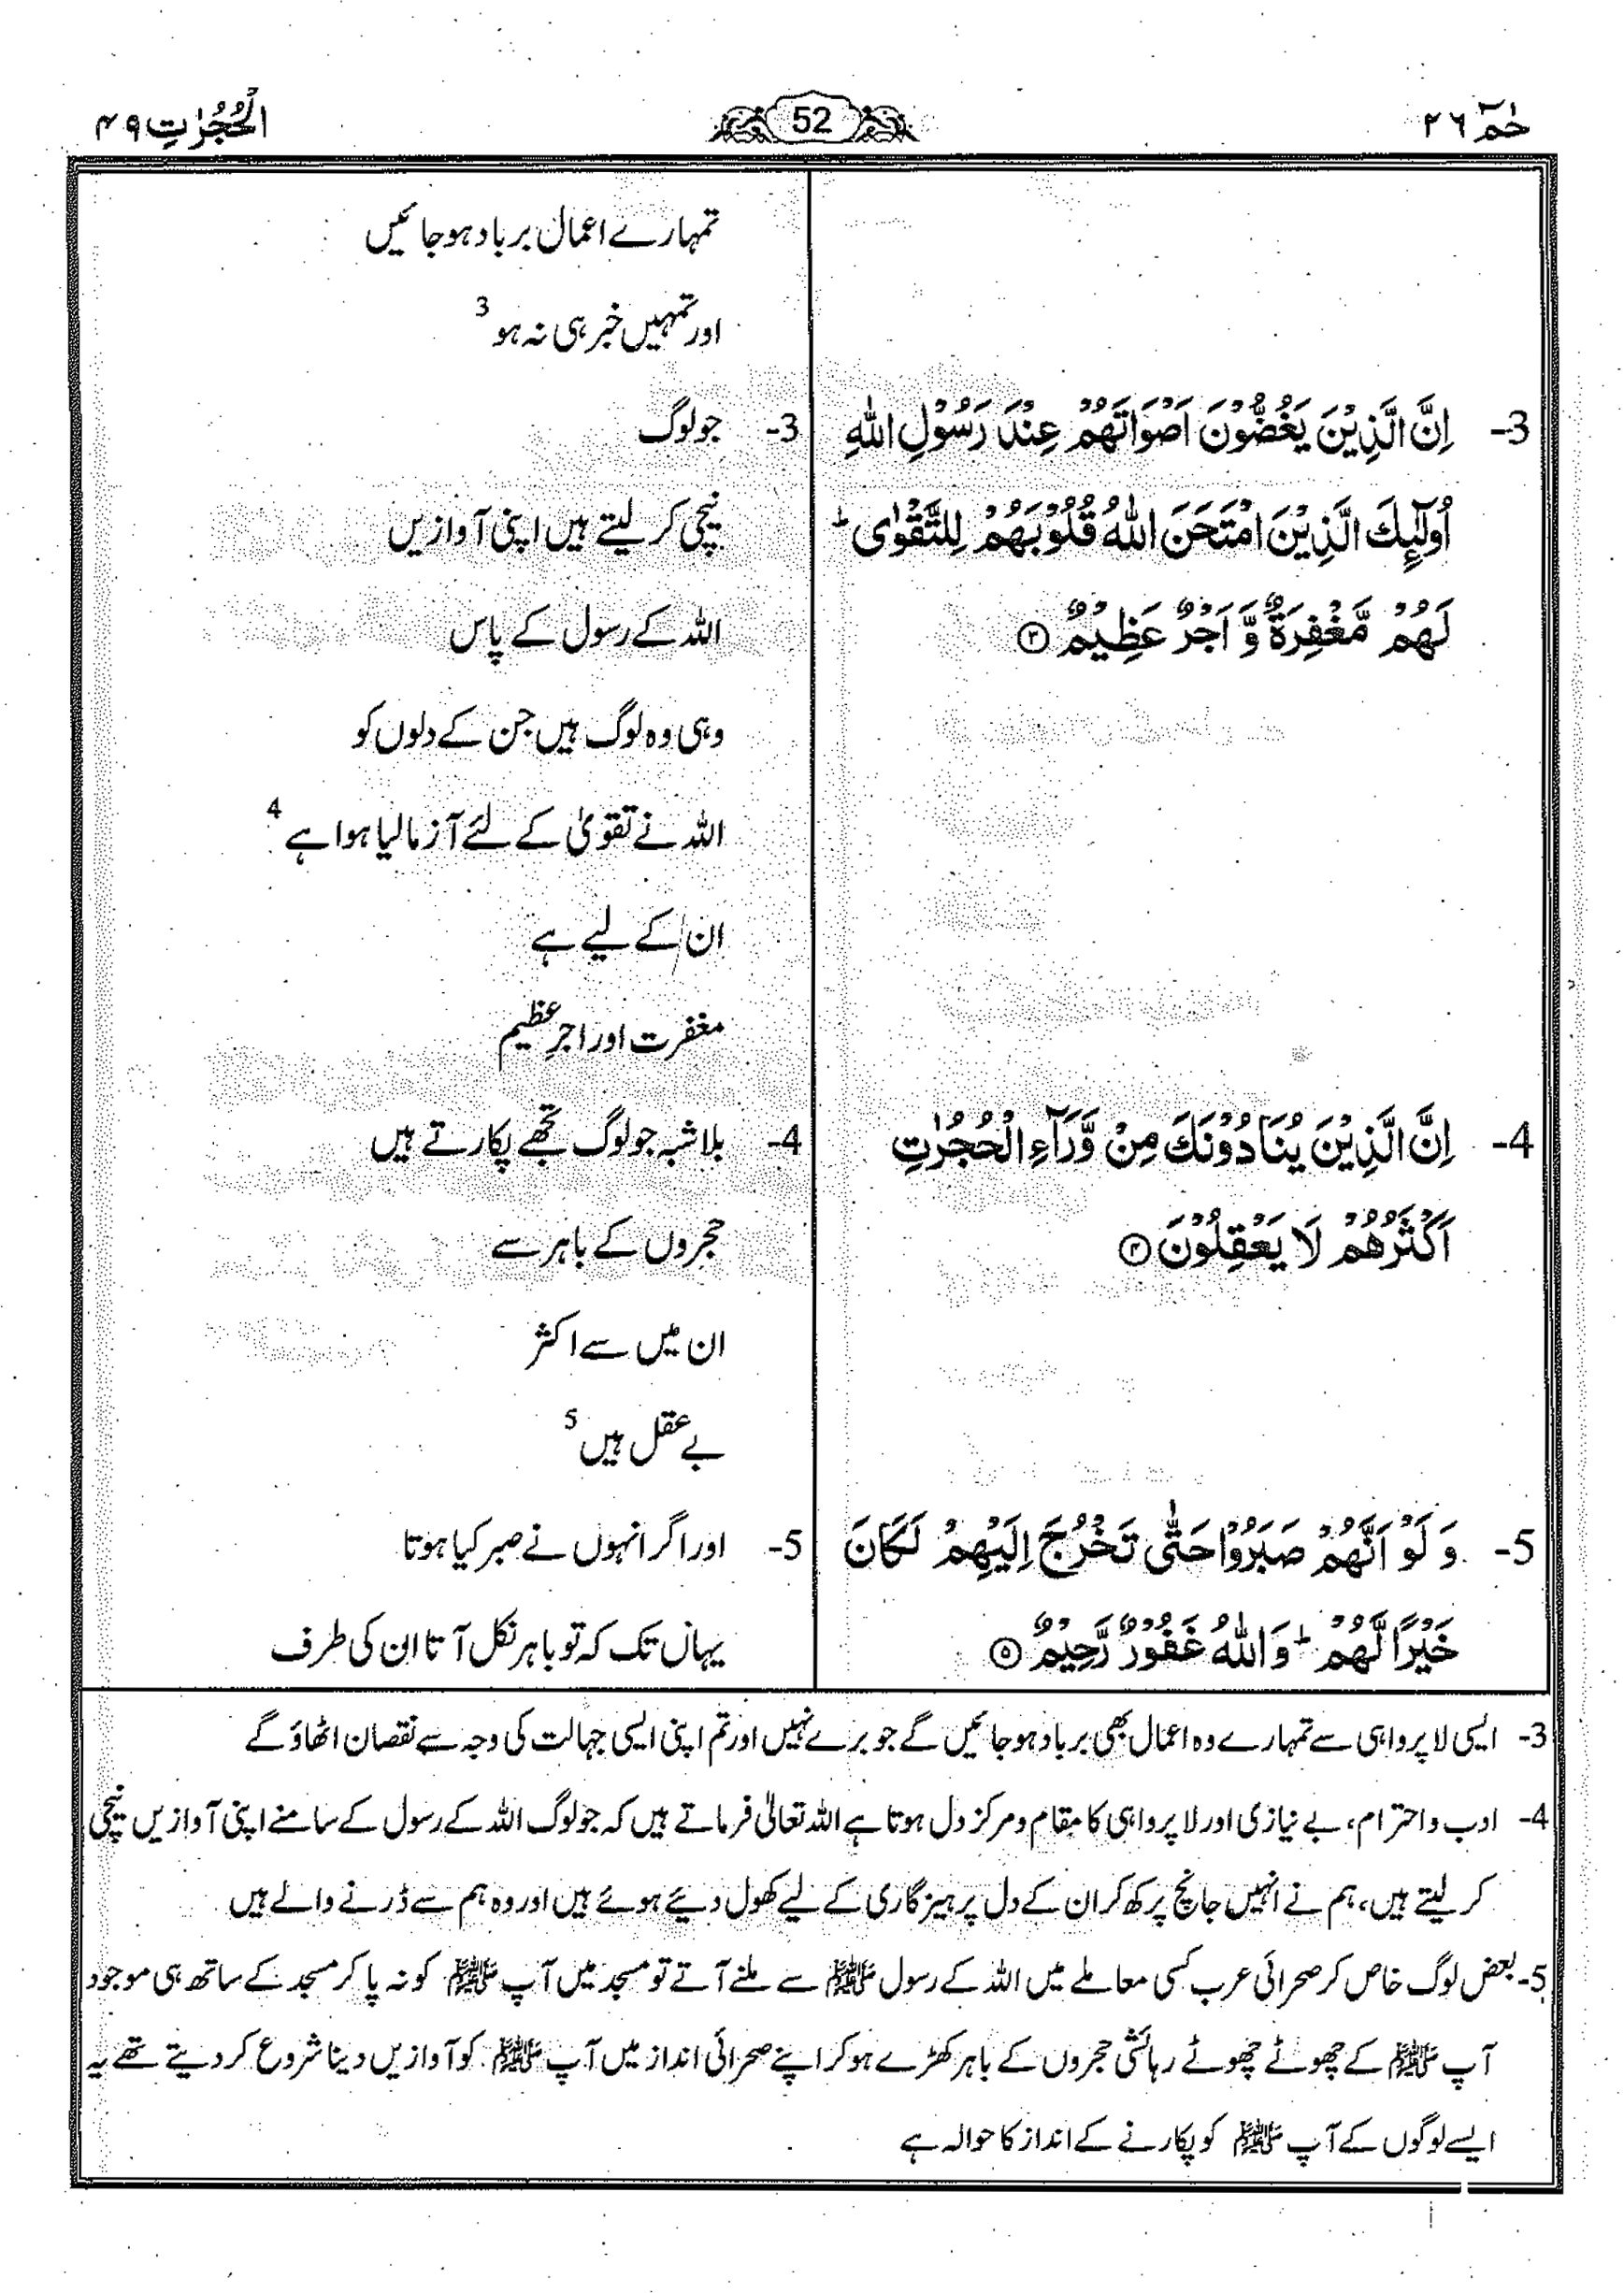 حٰمٓ ٢٦
52
الْحُجُرٰتِ ۴۹
تمہارے اعمال برباد ہو جائیں
اور تمہیں خبر ہی نہ ہو 3
3- اِنَّ الَّذِيْنَ يَغُضُّوْنَ اَصْوَاتَهُمْ عِنْدَ رَسُوْلِ اللّٰهِ
اُولٰٓئِكَ الَّذِيْنَ امْتَحَنَ اللّٰهُ قُلُوْبَهُمْ لِلتَّقْوٰى ؕ
لَهُمْ مَّغْفِرَةٌ وَّ اَجْرٌ عَظِيْمٌ ۝۳
3- جو لوگ
نیچی کر لیتے ہیں اپنی آوازیں
اللہ کے رسول کے پاس
وہی وہ لوگ ہیں جن کے دلوں کو
اللہ نے تقویٰ کے لئے آزما لیا ہوا ہے 4
ان کے لیے ہے
مغفرت اور اجرِ عظیم
4- اِنَّ الَّذِيْنَ يُنَادُوْنَكَ مِنْ وَّرَآءِ الْحُجُرٰتِ
اَكْثَرُهُمْ لَا يَعْقِلُوْنَ ۝۴
4- بلاشبہ جو لوگ تجھے پکارتے ہیں
حجروں کے باہر سے
ان میں سے اکثر
بے عقل ہیں 5
5- وَ لَوْ اَنَّهُمْ صَبَرُوْا حَتّٰى تَخْرُجَ اِلَيْهِمْ لَكَانَ
خَيْرًا لَّهُمْ ؕ وَ اللّٰهُ غَفُوْرٌ رَّحِيْمٌ ۝۵
5- اور اگر انہوں نے صبر کیا ہوتا
یہاں تک کہ تو باہر نکل آتا ان کی طرف
3- ایسی لا پرواہی سے تمہارے وہ اعمال بھی برباد ہو جائیں گے جو برے نہیں اور تم اپنی ایسی جہالت کی وجہ سے نقصان اٹھاؤ گے
4- ادب و احترام، بے نیازی اور لا پرواہی کا مقام و مرکز دل ہوتا ہے اللہ تعالیٰ فرماتے ہیں کہ جو لوگ اللہ کے رسول کے سامنے اپنی آوازیں نیچی
کر لیتے ہیں، ہم نے انہیں جانچ پرکھ کر ان کے دل پرہیز گاری کے لیے کھول دیئے ہوئے ہیں اور وہ ہم سے ڈرنے والے ہیں
5- بعض لوگ خاص کر صحرائی عرب کسی معاملے میں اللہ کے رسول ﷺ سے ملنے آتے تو مسجد میں آپ ﷺ کو نہ پا کر مسجد کے ساتھ ہی موجود
آپ ﷺ کے چھوٹے چھوٹے رہائشی حجروں کے باہر کھڑے ہو کر اپنے صحرائی انداز میں آپ ﷺ کو آوازیں دینا شروع کر دیتے تھے یہ
ایسے لوگوں کے آپ ﷺ کو پکارنے کے انداز کا حوالہ ہے